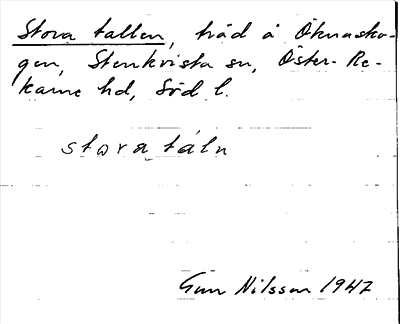 Stora tallen, träd å Öknasko-
gen, Stenkvista sn, Öster-Re-
karne hd, Söd l.
stora táln
Gun Nilsson 1947